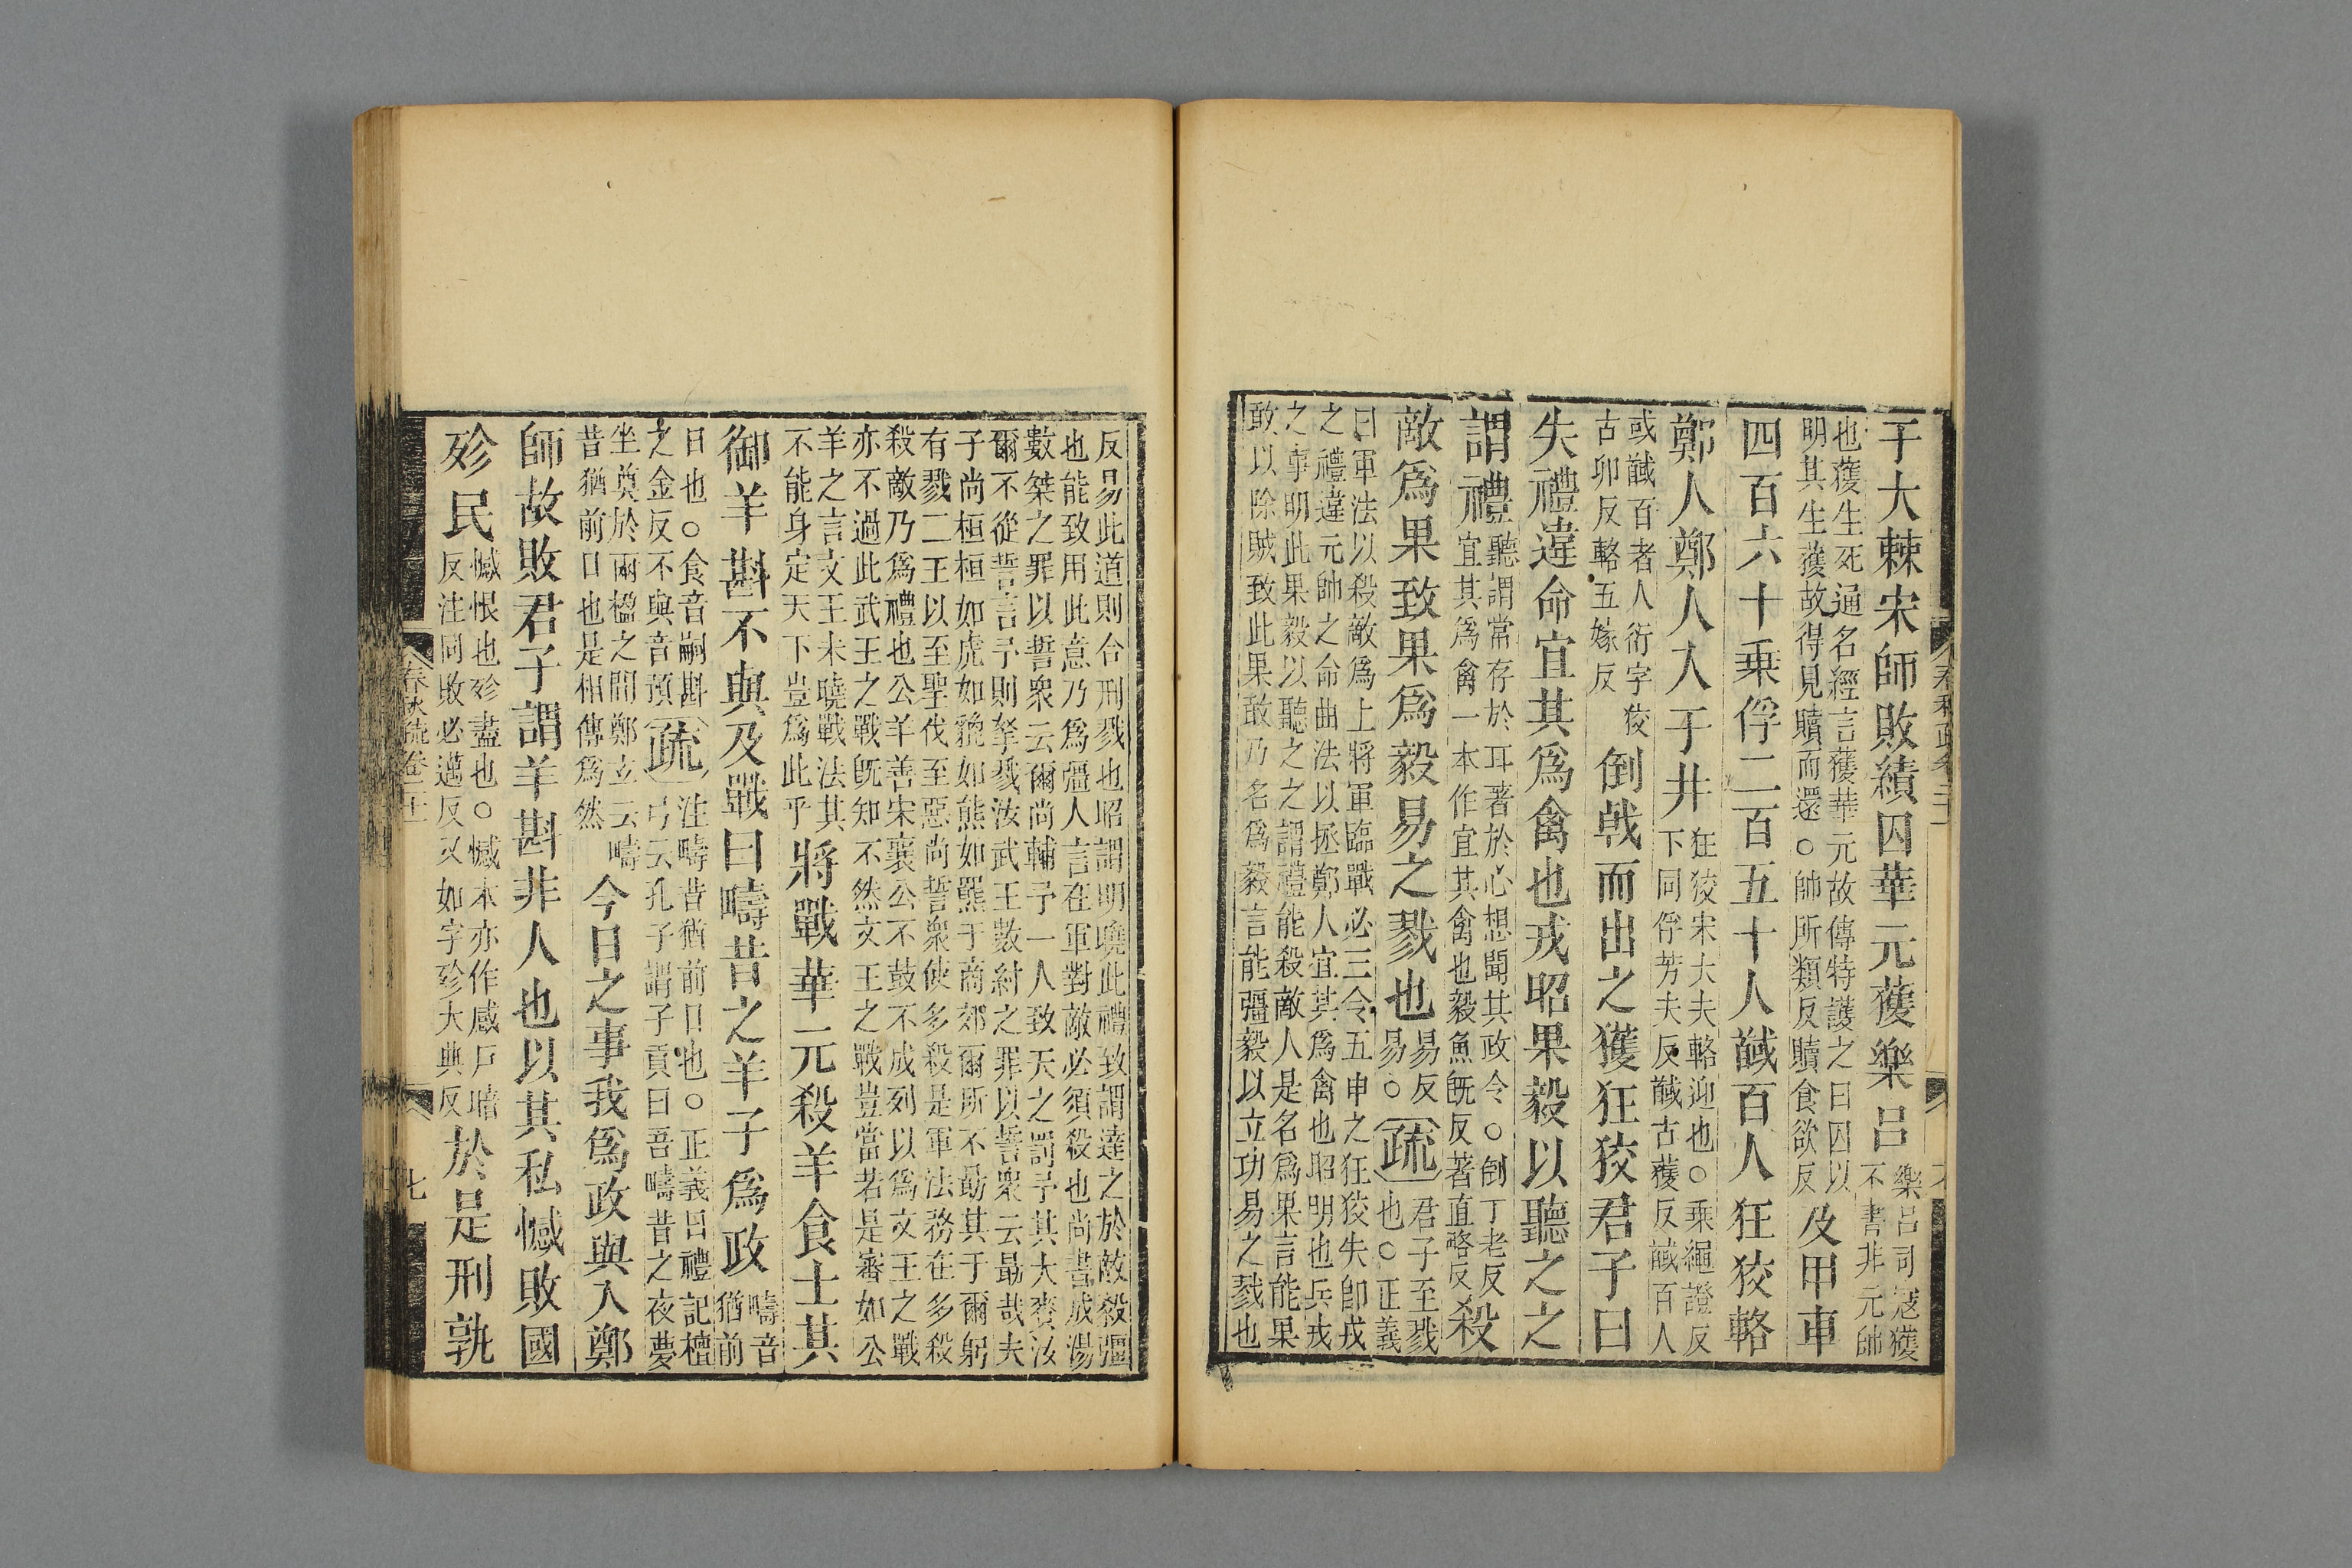 于大棘宋師敗績囚華元獲樂呂
樂呂司寇獲
不書非元帥
也獲生死通名經言獲華元故傳特護之曰囚以
明其生獲故得見贖而還○帥所類反贖食欲反
及甲車
四百六十乗俘二百五十人馘百人狂狡輅
鄭人鄭人入于井
狂狡宋大夫輅迎也○乗繩證反
下同俘芳夫反馘古獲反馘百人
或馘百者人衍字狡
古卯反輅五嫁反
倒戟而出之獲狂狡君子曰
失禮違命宜其爲禽也戎昭果毅以聽之之
謂禮
聽謂常存於耳著於心想聞其政令○倒丁老反
宜其爲禽一本作宜其禽也毅魚旣反著直略反
殺
敵爲果致果爲毅易之戮也
易反
易○
疏
君子至戮
也○正義
曰軍法以殺敵爲上將軍臨戰必三令五申之狂狡失卽戎
之禮違元帥之命曲法以拯鄭人宜其爲禽也昭明也兵戎
之事明此果毅以聽之之謂禮能殺敵人是名爲果言能果
敢以除賊致此果敢乃名爲毅言能彊毅以立功易之戮也
反易此道則合刑戮也昭謂明曉此禮致謂達之於敵殺彊
也能致用此意乃爲彊人言在軍對敵必須殺也尚書成湯
數桀之罪以誓衆云爾尚輔予一人致天之罰予其大賚汝
爾不從誓言予則孥戮汝武王數紂之罪以誓衆云勗哉夫
子尚桓桓如虎如貔如熊如羆于商郊爾所不勗其于爾躬
有戮二王以至聖伐至惡尚誓衆使多殺是軍法務在多殺
殺敵乃爲禮也公羊善宋襄公不鼓不成列以爲文王之戰
亦不過此武王之戰旣知不然文王之戰豈當若是審如公
羊之言文王未曉戰法其
不能身定天下豈爲此乎
將戰華元殺羊食士其
御羊斟不與及戰曰疇昔之羊子爲政
疇音
猶前
日也○食音嗣斟
之金反不與音預
疏
注疇昔猶前日也○正義曰禮記檀
弓云孔子謂子貢曰吾疇昔之夜夢
坐奠於兩楹之間鄭玄云疇
昔猶前日也是相傳爲然
今日之事我爲政與入鄭
師故敗君子謂羊斟非人也以其私憾敗國
殄民
憾恨也殄盡也○憾本亦作感戶暗
反注同敗必邁反又如字殄大典反
於是刑孰
春秋疏卷二十一
七